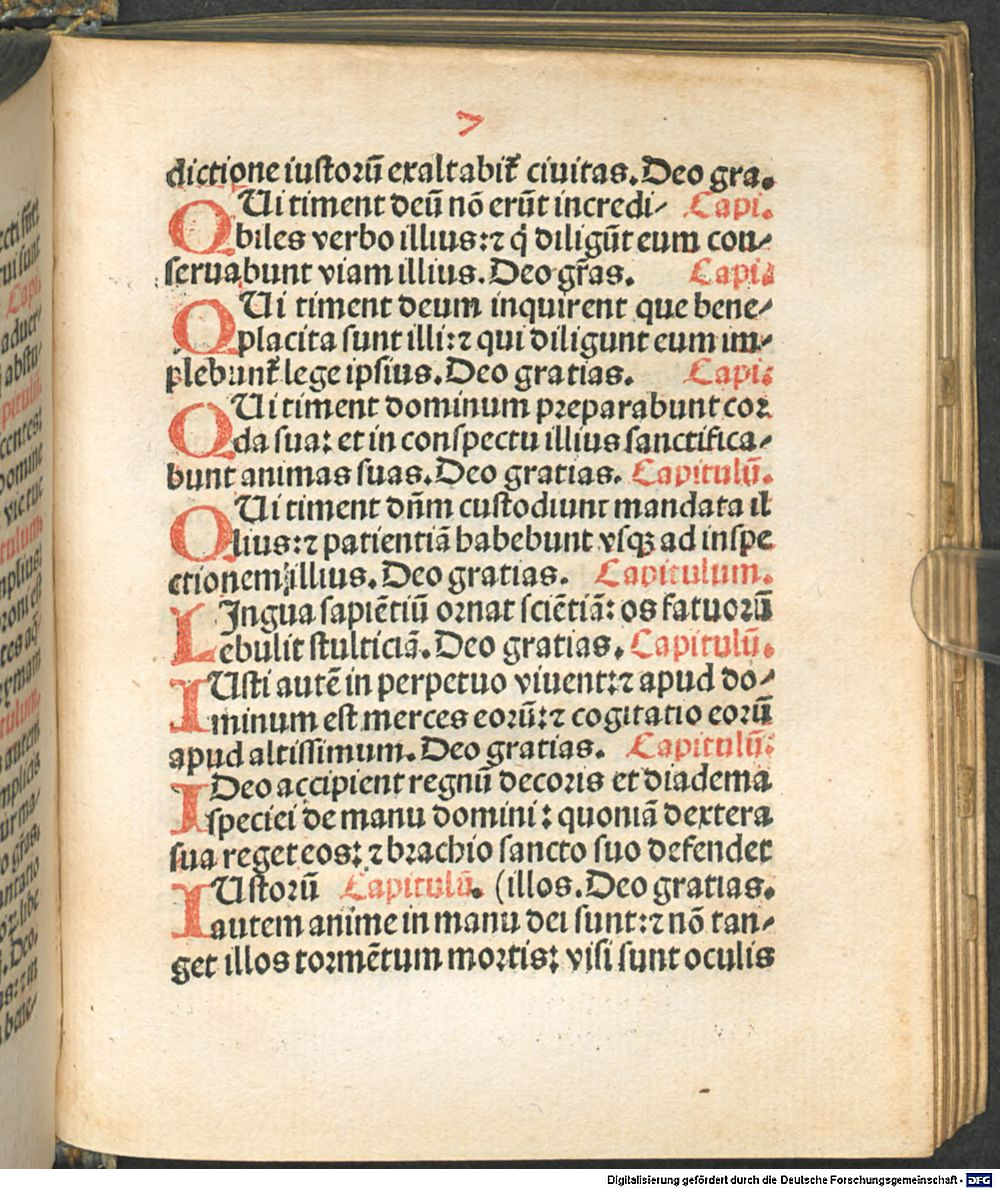 7
dictione iustorū exaltabit᷑ ciuitas. Deo gra.
QUi timent deū nō erūt incredi⸗ Capi.
biles verbo illius: ⁊ q̇ diligūt eum con⸗
seruabunt viam illius. Deo gr̄as. Capi.
QUi timent deum inquirent que bene⸗
placita sunt illi: ⁊ qui diligunt eum im⸗
plebunt᷑ lege ipsius. Deo gratias. Capi.
QUi timent dominum preparabunt cor
da sua: et in conspectu illius sanctifica⸗
bunt animas suas. Deo gratias. Capitulū.
QUi timent dn̄m custodiunt mandata il
lius: ⁊ patientiā habebunt vsqꝫ ad inspe
ctionem illius. Deo gratias. Capitulum.
LIngua sapiētiū ornat sciētiā: os fatuorū
ebulit stulticiā. Deo gratias. Capitulū.
IUsti autē in perpetuo viuent: ⁊ apud do⸗
minum est merces eorū: ⁊ cogitatio eorū
apud altissimum. Deo gratias. Capitulū.
IDeo accipient regnū decoris et diadema
speciei de manu domini: quoniā dextera
sua reget eos: ⁊ brachio sancto suo defendet
IUstorū Capitulū. (illos. Deo gratias.
autem anime in manu dei sunt: ⁊ nō tan⸗
get illos tormētum mortis: visi sunt oculis
Digitalisierung gefördert durch die Deutsche Forschungsgemeinschaft - DFG